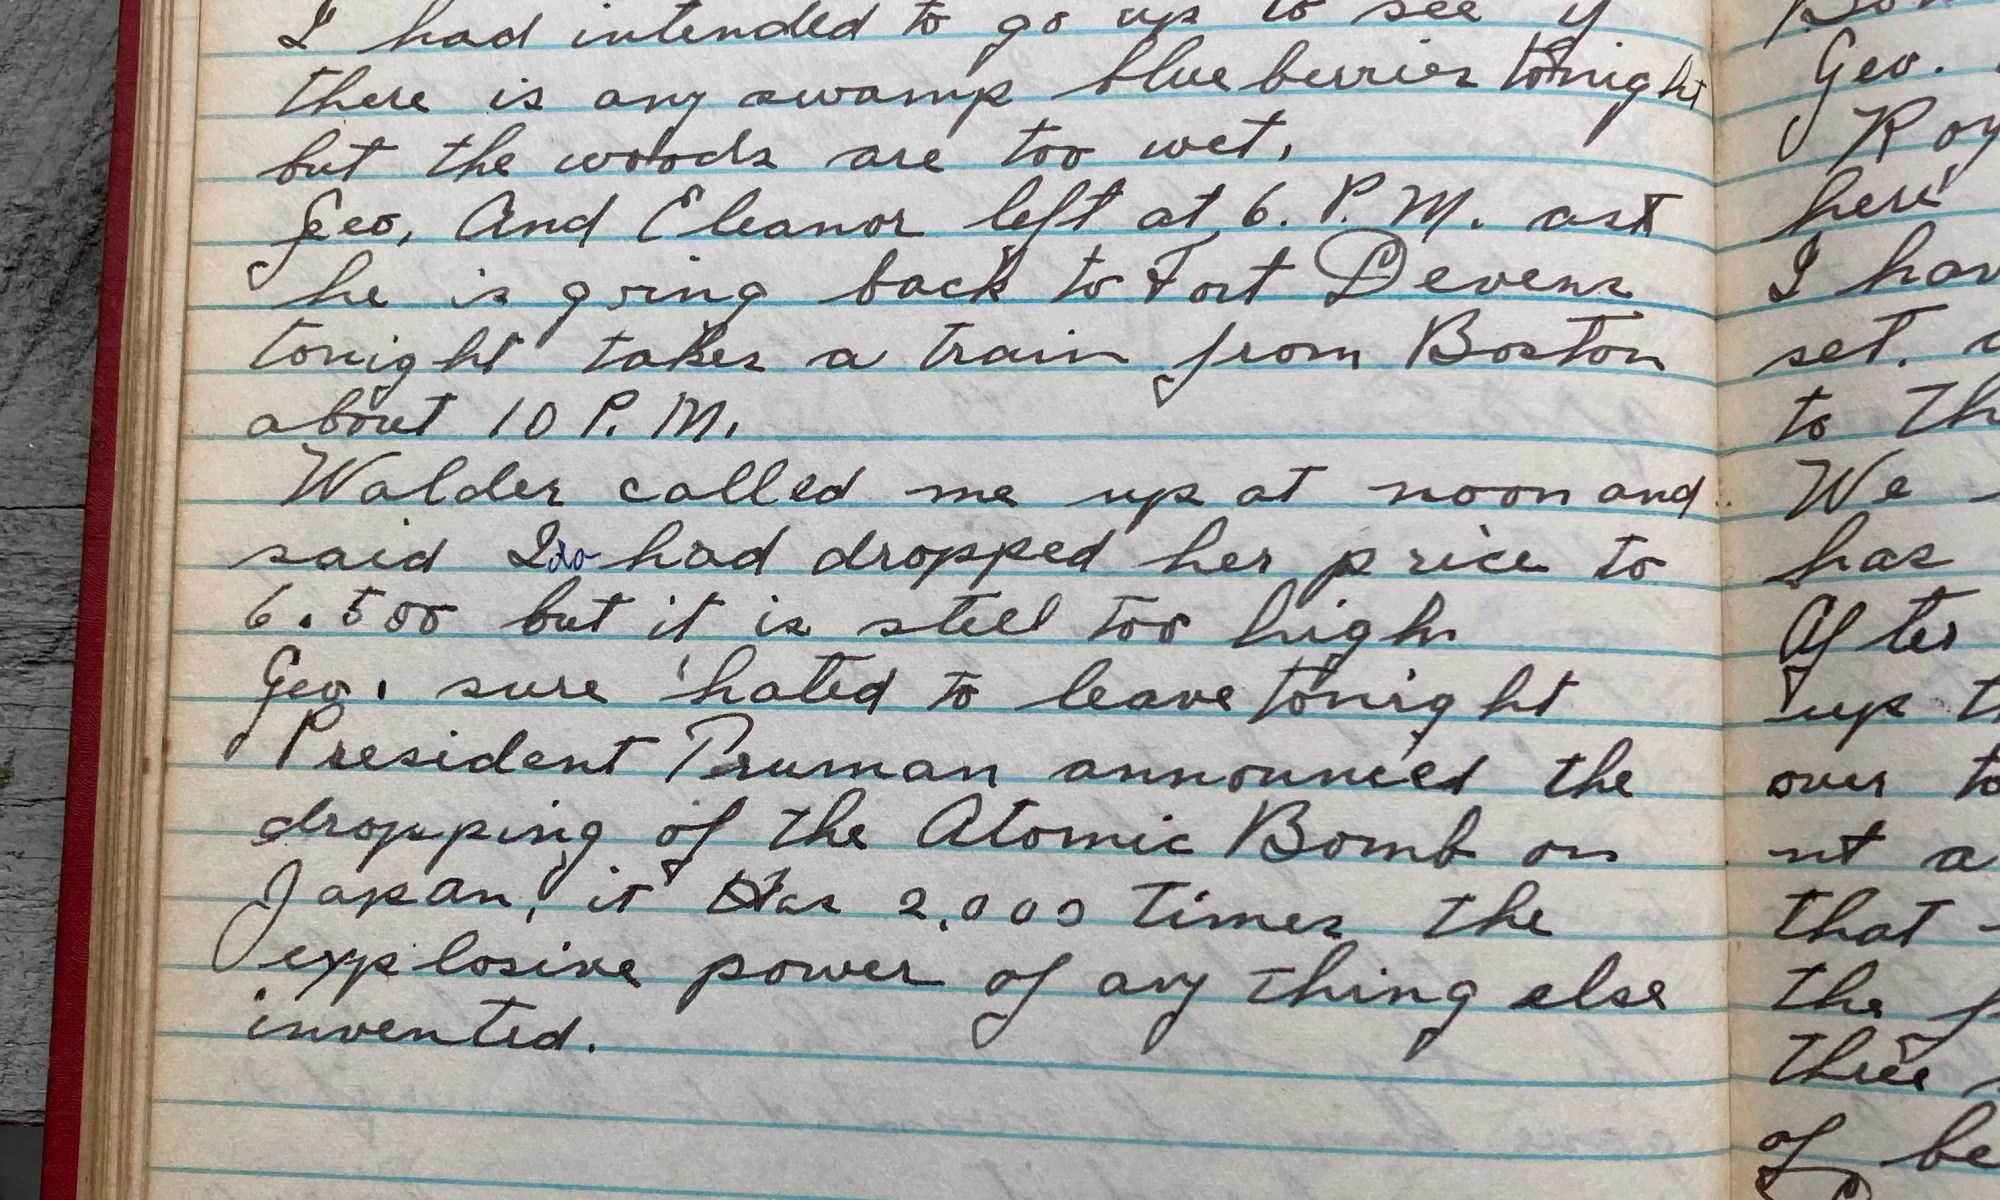 I had intended to go up to see if
there is any swamp blueberries tonight
but the woods are too wet.
Geo. And Eleanor left at 6. P.M. as
he is going back to Fort Devens
tonight takes a train from Boston
about 10 P.M.
Walder called me up at noon and
said had dropped her price to
6.500 but it is steel too high
Geo. sure hated to leave tonight
President Truman announced the
dropping of the Atomic Bomb on
Japan, it Has 2.000 Times the
explosive power of any thing else
invented.
Geo.
Roy
here
I hav
set.
to Th
We
has
After
up th
over to
nt a
that
the f
three
of be